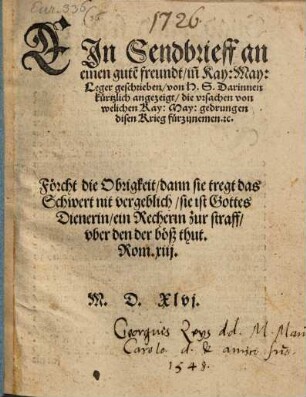 Eur. 336
1726.
EIn Sendbrieff an
einen gutẽ freundt/in Kay: May:
Leger geschrieben/von H. S. Darinnen
kürtzlich angezeigt/die vrsachen von
welichen Kay: May: gedrungen
disen Krieg fürzůnemen.ꝛc.
Förcht die Obrigkeit/dann sie tregt das
Schwert nit vergeblich/sie ist Gottes
Dienerin/ein Recherin zur straff/
vber den der böß thut.
Rom. xiij.
M. D. Xlvj.
Georgius Roys dd. M.
Carolo d. & amico suo
1548.